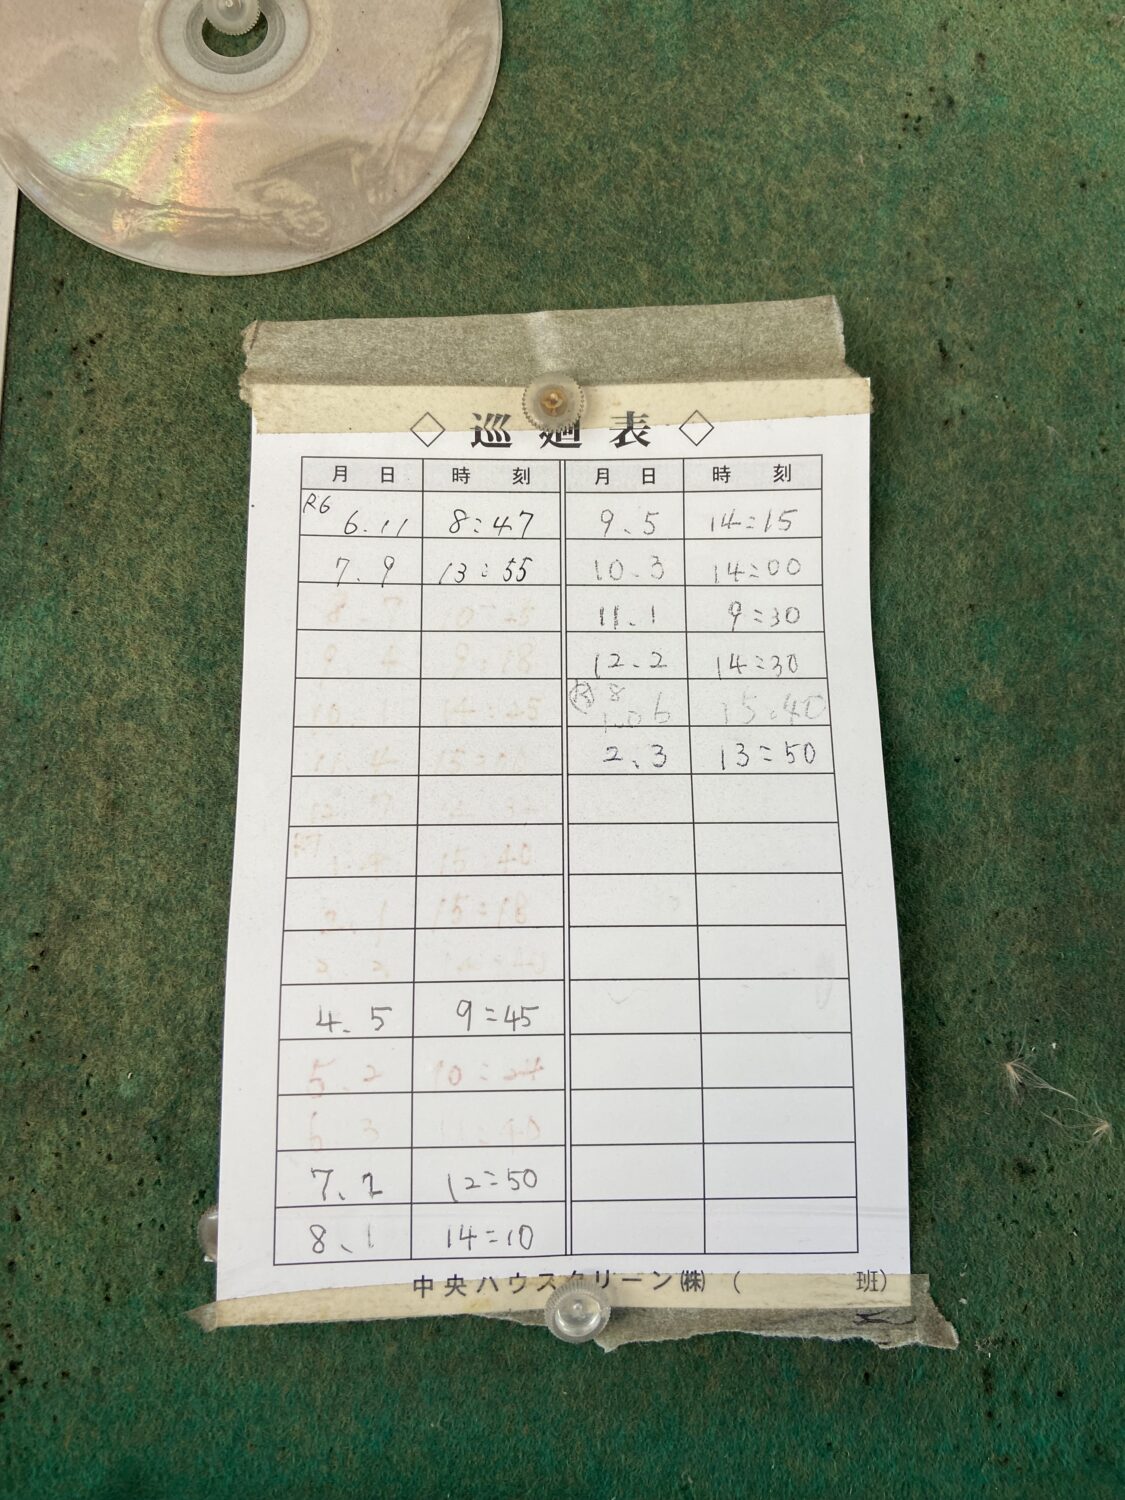 ◇ 巡廻表 ◇
月 日 時 刻 月 日 時 刻
R6 6.11 8:47 9.5 14:15
7.9 13:55 10.3 14:00
8.7 11.1 9:30
9.4 9:18 12.2 14:30
10.1 14:43 R8 15:40
11.4 2.3 13:50
R7 15:40
2.1 15:18
4.5 9:45
5.2 10:24
6.3 11:40
7.2 12:50
8.1 14:10
中央ハウスクリーン㈱ ( 班)